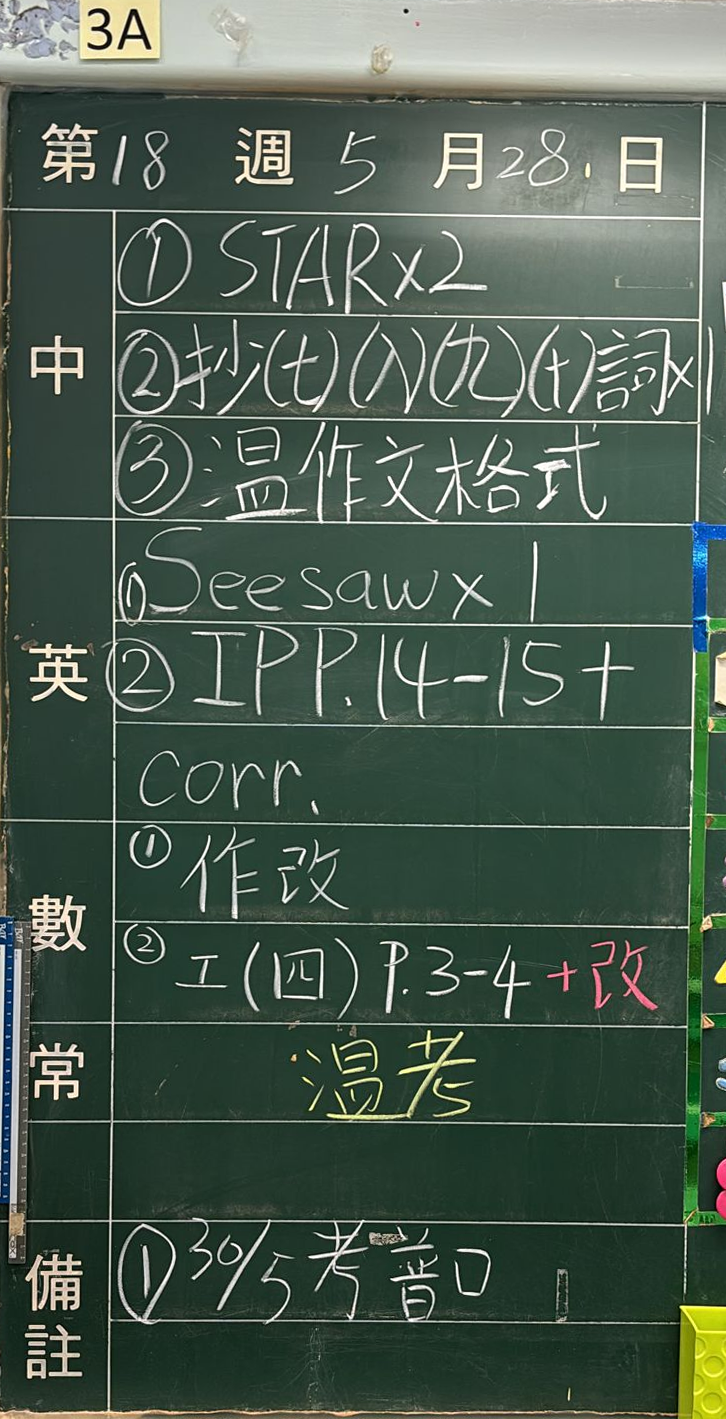 3A
第18週5月28日
中
①STARx2
②抄(七)(八)(九)(十)詞x1
③温作文格式
英
①Seesawx1
②IPP.14-15+
corr.
數
①作改
②工(四)P.3-4+改
常
温考
備註
①30/5考普口